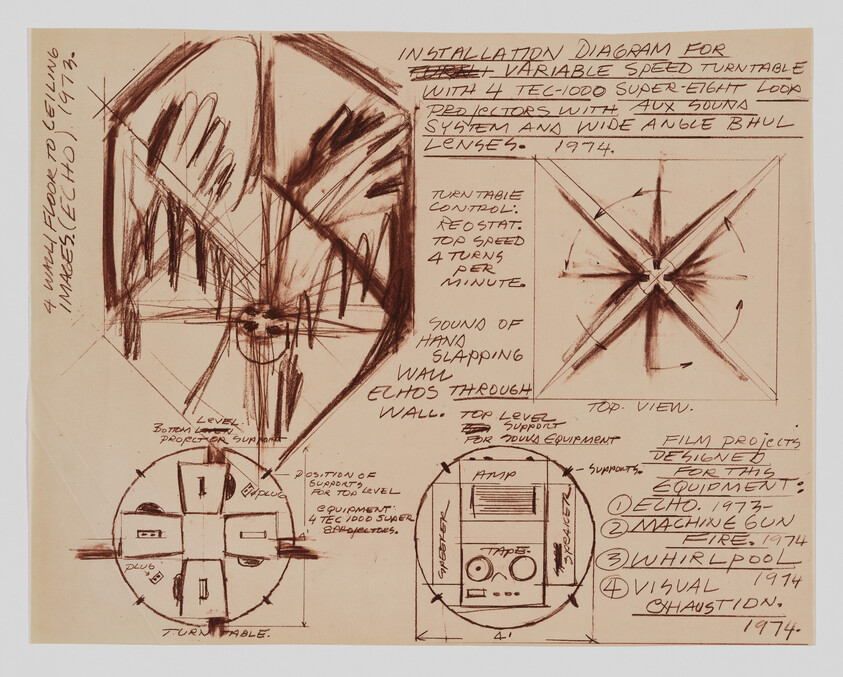 4 WALL, FLOOR TO CEILING
IMAGES. (ECHO). 1973.
INSTALLATION DIAGRAM FOR
VARIABLE SPEED TURNTABLE
WITH 4 TEC-1000 SUPER-EIGHT LOOP
PROJECTORS WITH AUX SOUND
SYSTEM AND WIDE ANGLE BHUL
LENSES. 1974.
TURNTABLE
CONTROL:
REOSTAT.
TOP SPEED
4 TURNS
PER
MINUTE.
SOUND OF
HAND
SLAPPING
WALL
ECHOS THROUGH
WALL.
TOP. VIEW.
LEVEL
BOTTOM
PROJECTOR SUPPORT
POSITION OF
SUPPORTS
FOR TOP LEVEL
EQUIPMENT:
4 TEC 1000 SUPER
8 PROJECTORS.
PLUG
PLUG
4'
TURNTABLE.
TOP LEVEL
SUPPORT
FOR SOUND EQUIPMENT
SUPPORTS.
AMP
SPEEKER
SPEAKER.
TAPE.
4'
FILM PROJECTS
DESIGNED
FOR THIS
EQUIPMENT:
① ECHO. 1973-
② MACHINE GUN
FIRE. 1974
③ WHIRLPOOL
1974
④ VISUAL
EXHAUSTION.
1974.